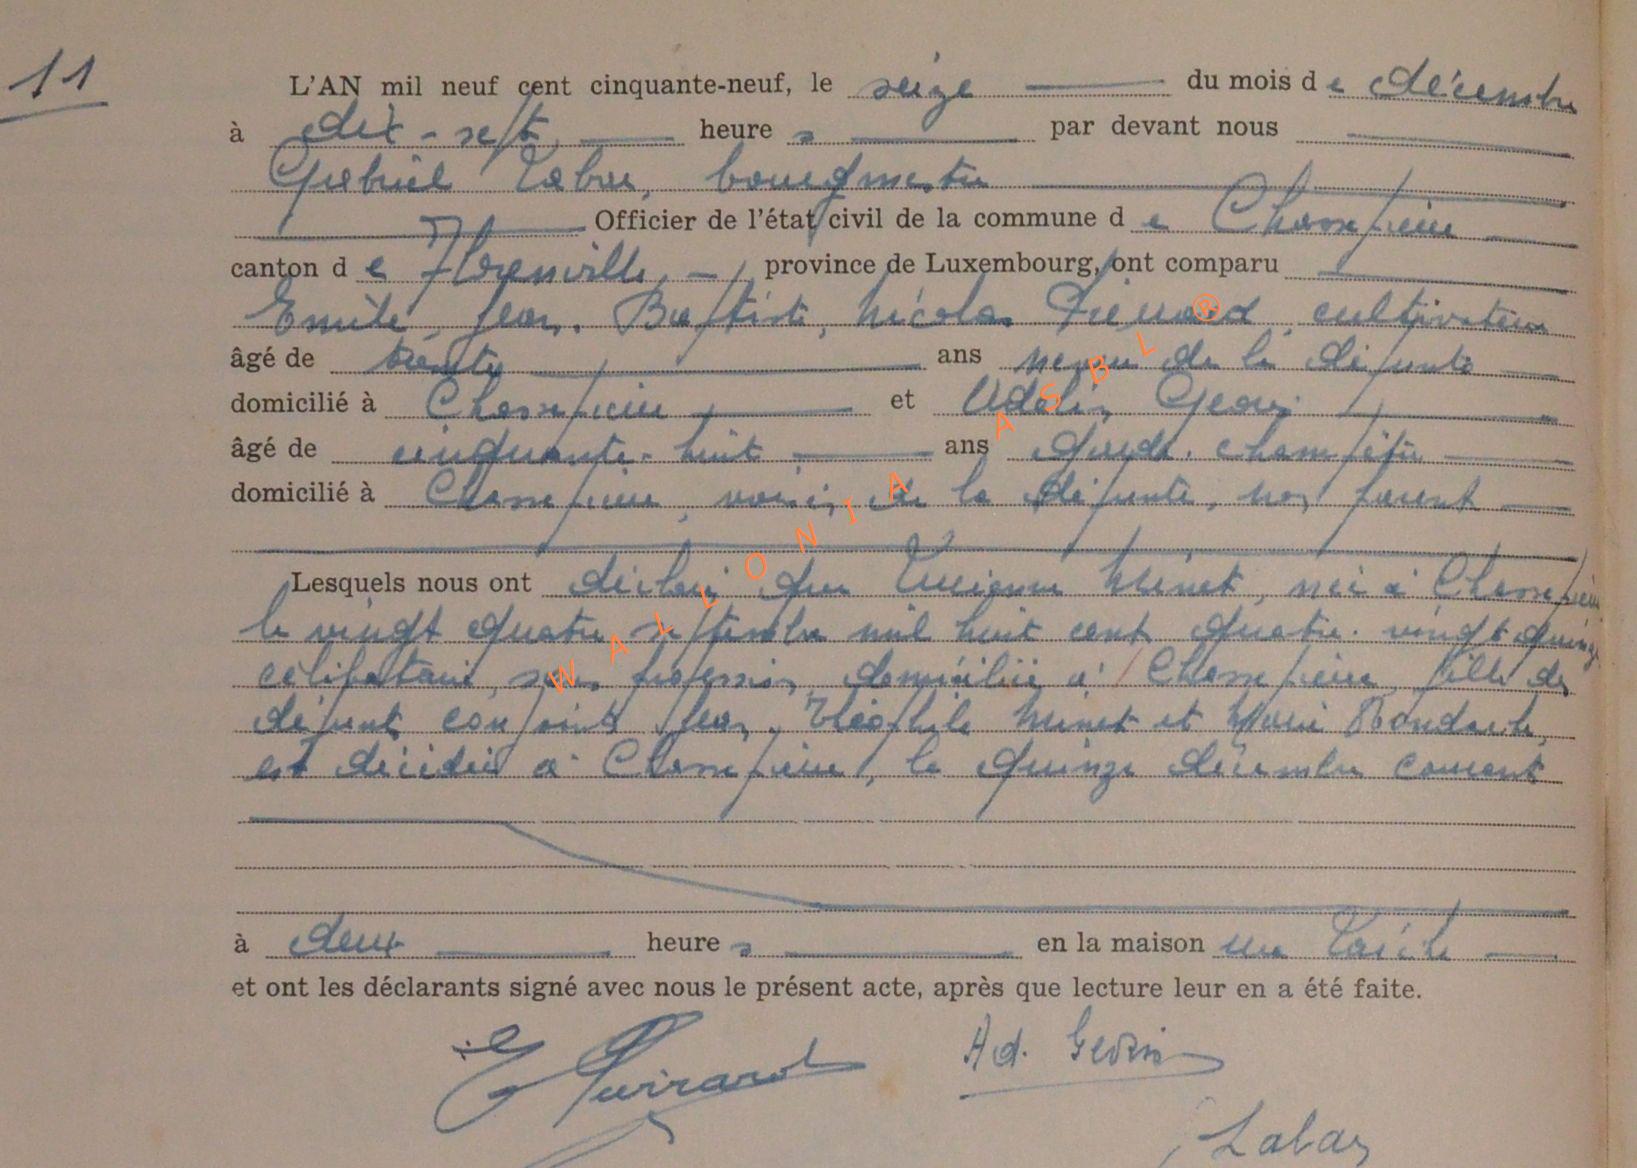 11
L'AN mil neuf cent cinquante-neuf, le seize du mois de décembre
à dix-sept heures par devant nous
Gabriel Labar, bourgmestre
Officier de l'état civil de la commune de Chassepierre
canton de Florenville, province de Luxembourg, ont comparu
Emile, Jean, Baptiste, Nicolas Pierrard, cultivateur
âgé de trente ans neveu de la défunte
domicilié à Chassepierre et Adelin
âgé de cinquante-huit ans garde-champêtre
domicilié à Chassepierre, voisin de la défunte, non parent
Lesquels nous ont déclaré que Lucienne Minet, née à Chassepierre
le vingt quatre septembre mil huit cent quatre-vingt quinze
célibataire, sans profession, domiciliée à Chassepierre, fille des
défunts conjoints Jean, Théophile Minet et Marie
est décédée à Chassepierre, le quinze décembre courant
à deux heures en la maison
et ont les déclarants signé avec nous le présent acte, après que lecture leur en a été faite.
Ad.
Labar
WALLONIA ASBL ®